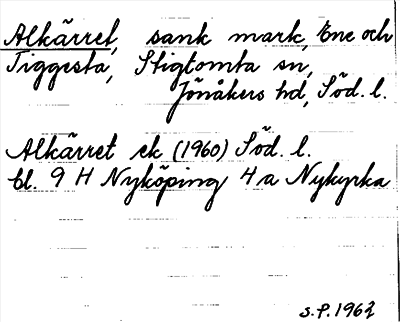 Alkärret, sank mark, Ene och
Tiggesta, Stigtomta sn,
Jönåkers hd, Söd. l.
Alkärret ek (1960) Söd. l.
bl. 9 H Nyköping 4 a Nykyrka
S.P. 1962